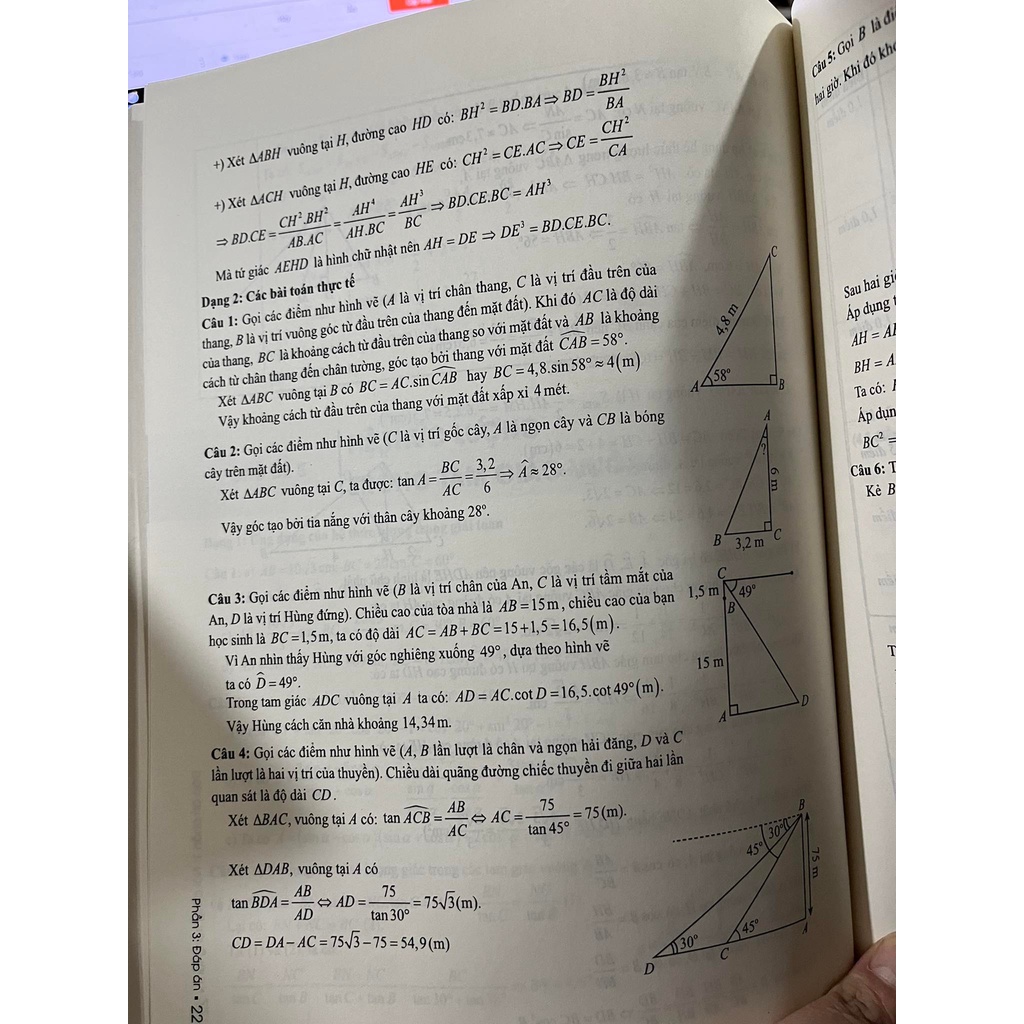 +) Xét ΔABH vuông tại H, đường cao HD có: BH² = BD.BA ⇒ BD = BH²/BA
+) Xét ΔACH vuông tại H, đường cao HE có: CH² = CE.AC ⇒ CE = CH²/CA
⇒ BD.CE = CH².BH²/AB.AC = AH⁴/AH.BC = AH³/BC ⇒ BD.CE.BC = AH³
Mà tứ giác AEHD là hình chữ nhật nên AH = DE ⇒ DE³ = BD.CE.BC.
Dạng 2: Các bài toán thực tế
Câu 1: Gọi các điểm như hình vẽ (A là vị trí chân thang, C là vị trí đầu trên của
thang, B là vị trí vuông góc từ đầu trên của thang đến mặt đất). Khi đó AC là độ dài
của thang, BC là khoảng cách từ đầu trên của thang so với mặt đất và AB là khoảng
cách từ chân thang đến chân tường, góc tạo bởi thang với mặt đất CAB = 58°.
Xét ΔABC vuông tại B có BC = AC.sin CAB hay BC = 4,8.sin 58° ≈ 4(m)
Vậy khoảng cách từ đầu trên của thang với mặt đất xấp xỉ 4 mét.
C
4,8 m
A 58° B
Câu 2: Gọi các điểm như hình vẽ (C là vị trí gốc cây, A là ngọn cây và CB là bóng
cây trên mặt đất).
Xét ΔABC vuông tại C, ta được: tan A = BC/AC = 3,2/6 ⇒ Â ≈ 28°.
Vậy góc tạo bởi tia nắng với thân cây khoảng 28°.
A
?
6 m
B 3,2 m C
Câu 3: Gọi các điểm như hình vẽ (B là vị trí chân của An, C là vị trí tầm mắt của
An, D là vị trí Hùng đứng). Chiều cao của tòa nhà là AB = 15m, chiều cao của bạn
học sinh là BC = 1,5m, ta có độ dài AC = AB + BC = 15 + 1,5 = 16,5(m).
Vì An nhìn thấy Hùng với góc nghiêng xuống 49°, dựa theo hình vẽ
ta có D̂ = 49°.
Trong tam giác ADC vuông tại A ta có: AD = AC.cot D = 16,5.cot 49°(m).
Vậy Hùng cách căn nhà khoảng 14,34m.
C
1,5 m 49°
B
15 m
A D
Câu 4: Gọi các điểm như hình vẽ (A, B lần lượt là chân và ngọn hải đăng, D và C
lần lượt là hai vị trí của thuyền). Chiều dài quãng đường chiếc thuyền đi giữa hai lần
quan sát là độ dài CD.
Xét ΔBAC, vuông tại A có: tan ACB = AB/AC ⇔ AC = 75/tan 45° = 75(m).
Xét ΔDAB, vuông tại A có
tan BDA = AB/AD ⇔ AD = 75/tan 30° = 75√3(m).
CD = DA − AC = 75√3 − 75 = 54,9(m)
B
30°
45°
75 m
30° 45° A
D C
Phần 3: Đáp án • 22
Câu 5: Gọi B là
hai giờ. Khi đó
Sau hai
Áp dụng
AH =
BH =
Ta có:
Áp
BC² =
Câu 6:
Kẻ B